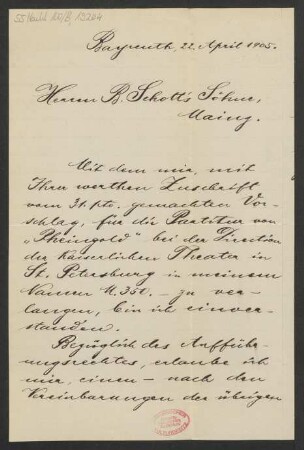 55 Nachl 15/B, 13204
Bayreuth, 22. April 1905.
Herrn B. Schott's Söhne,
Mainz.
Mit dem mir, mit
Ihrer werthen Zuschrift
vom 31. pto. gemachten Vor-
schlag, für die Partitur von
„Rheingold" bei der Direction
der Kaiserlichen Theater in
St. Petersburg in meinem
Namen M. 350. – zu ver-
langen, bin ich einver-
standen.
Bezüglich des Aufführ-
ungsrechtes, erlaube ich
mir, einen – nach den
Vereinbarungen der übrigen